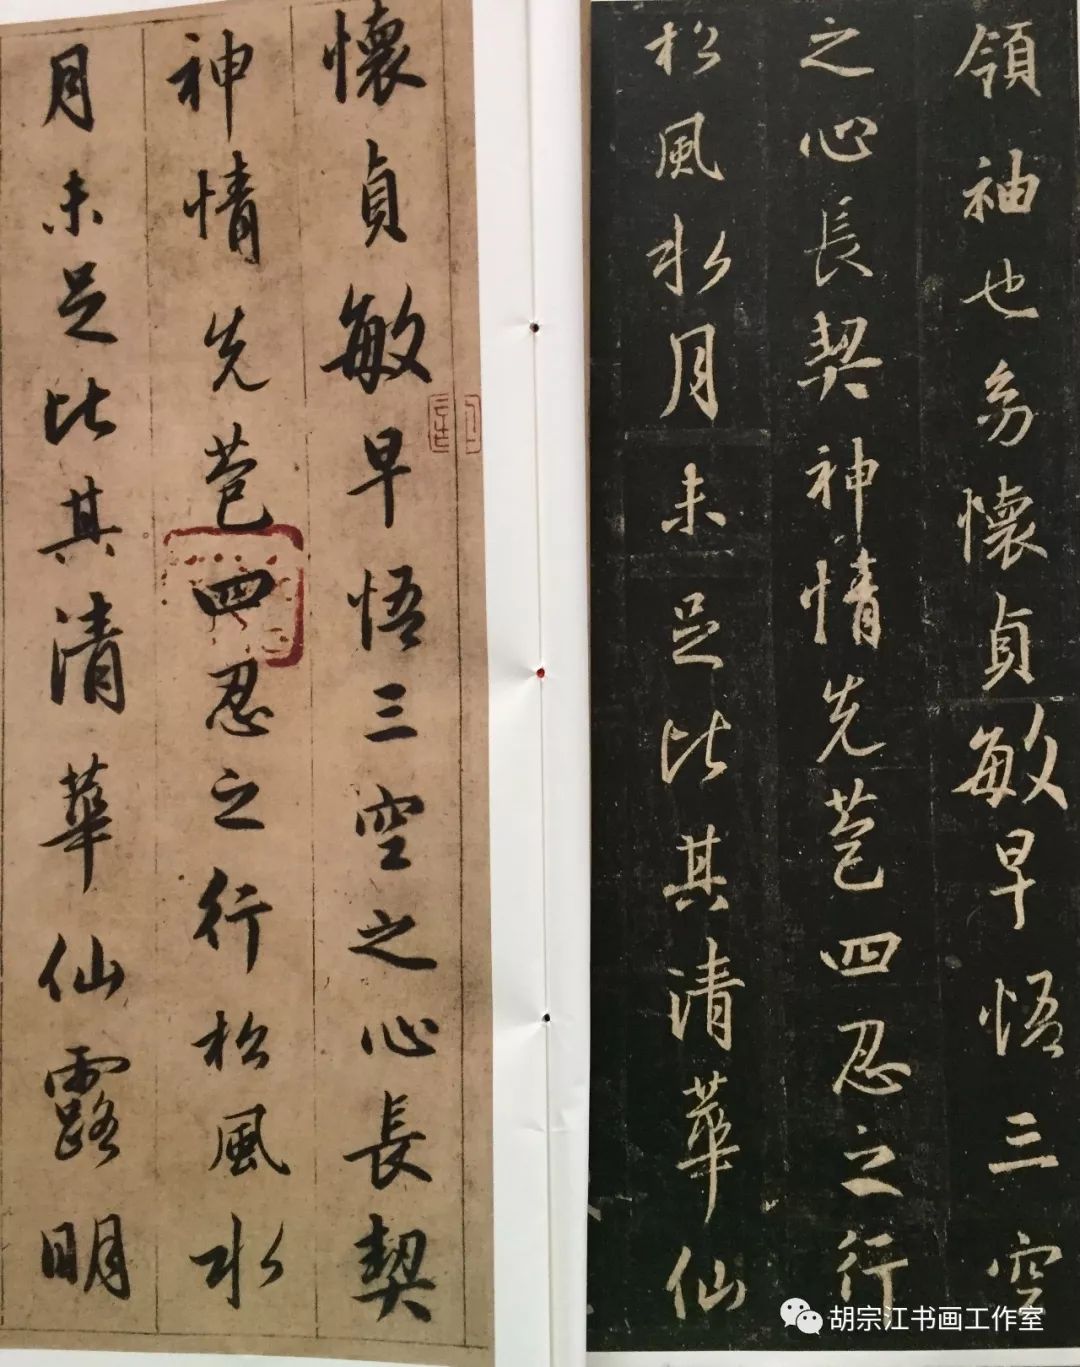 領袖也幼懷貞敏早悟三空
之心長契神情先苞四忍之行
松風水月未足比其清華仙
懷貞敏早悟三空之心長契
神情先苞四忍之行松風水
月未足比其清華仙露明
胡宗江书画工作室